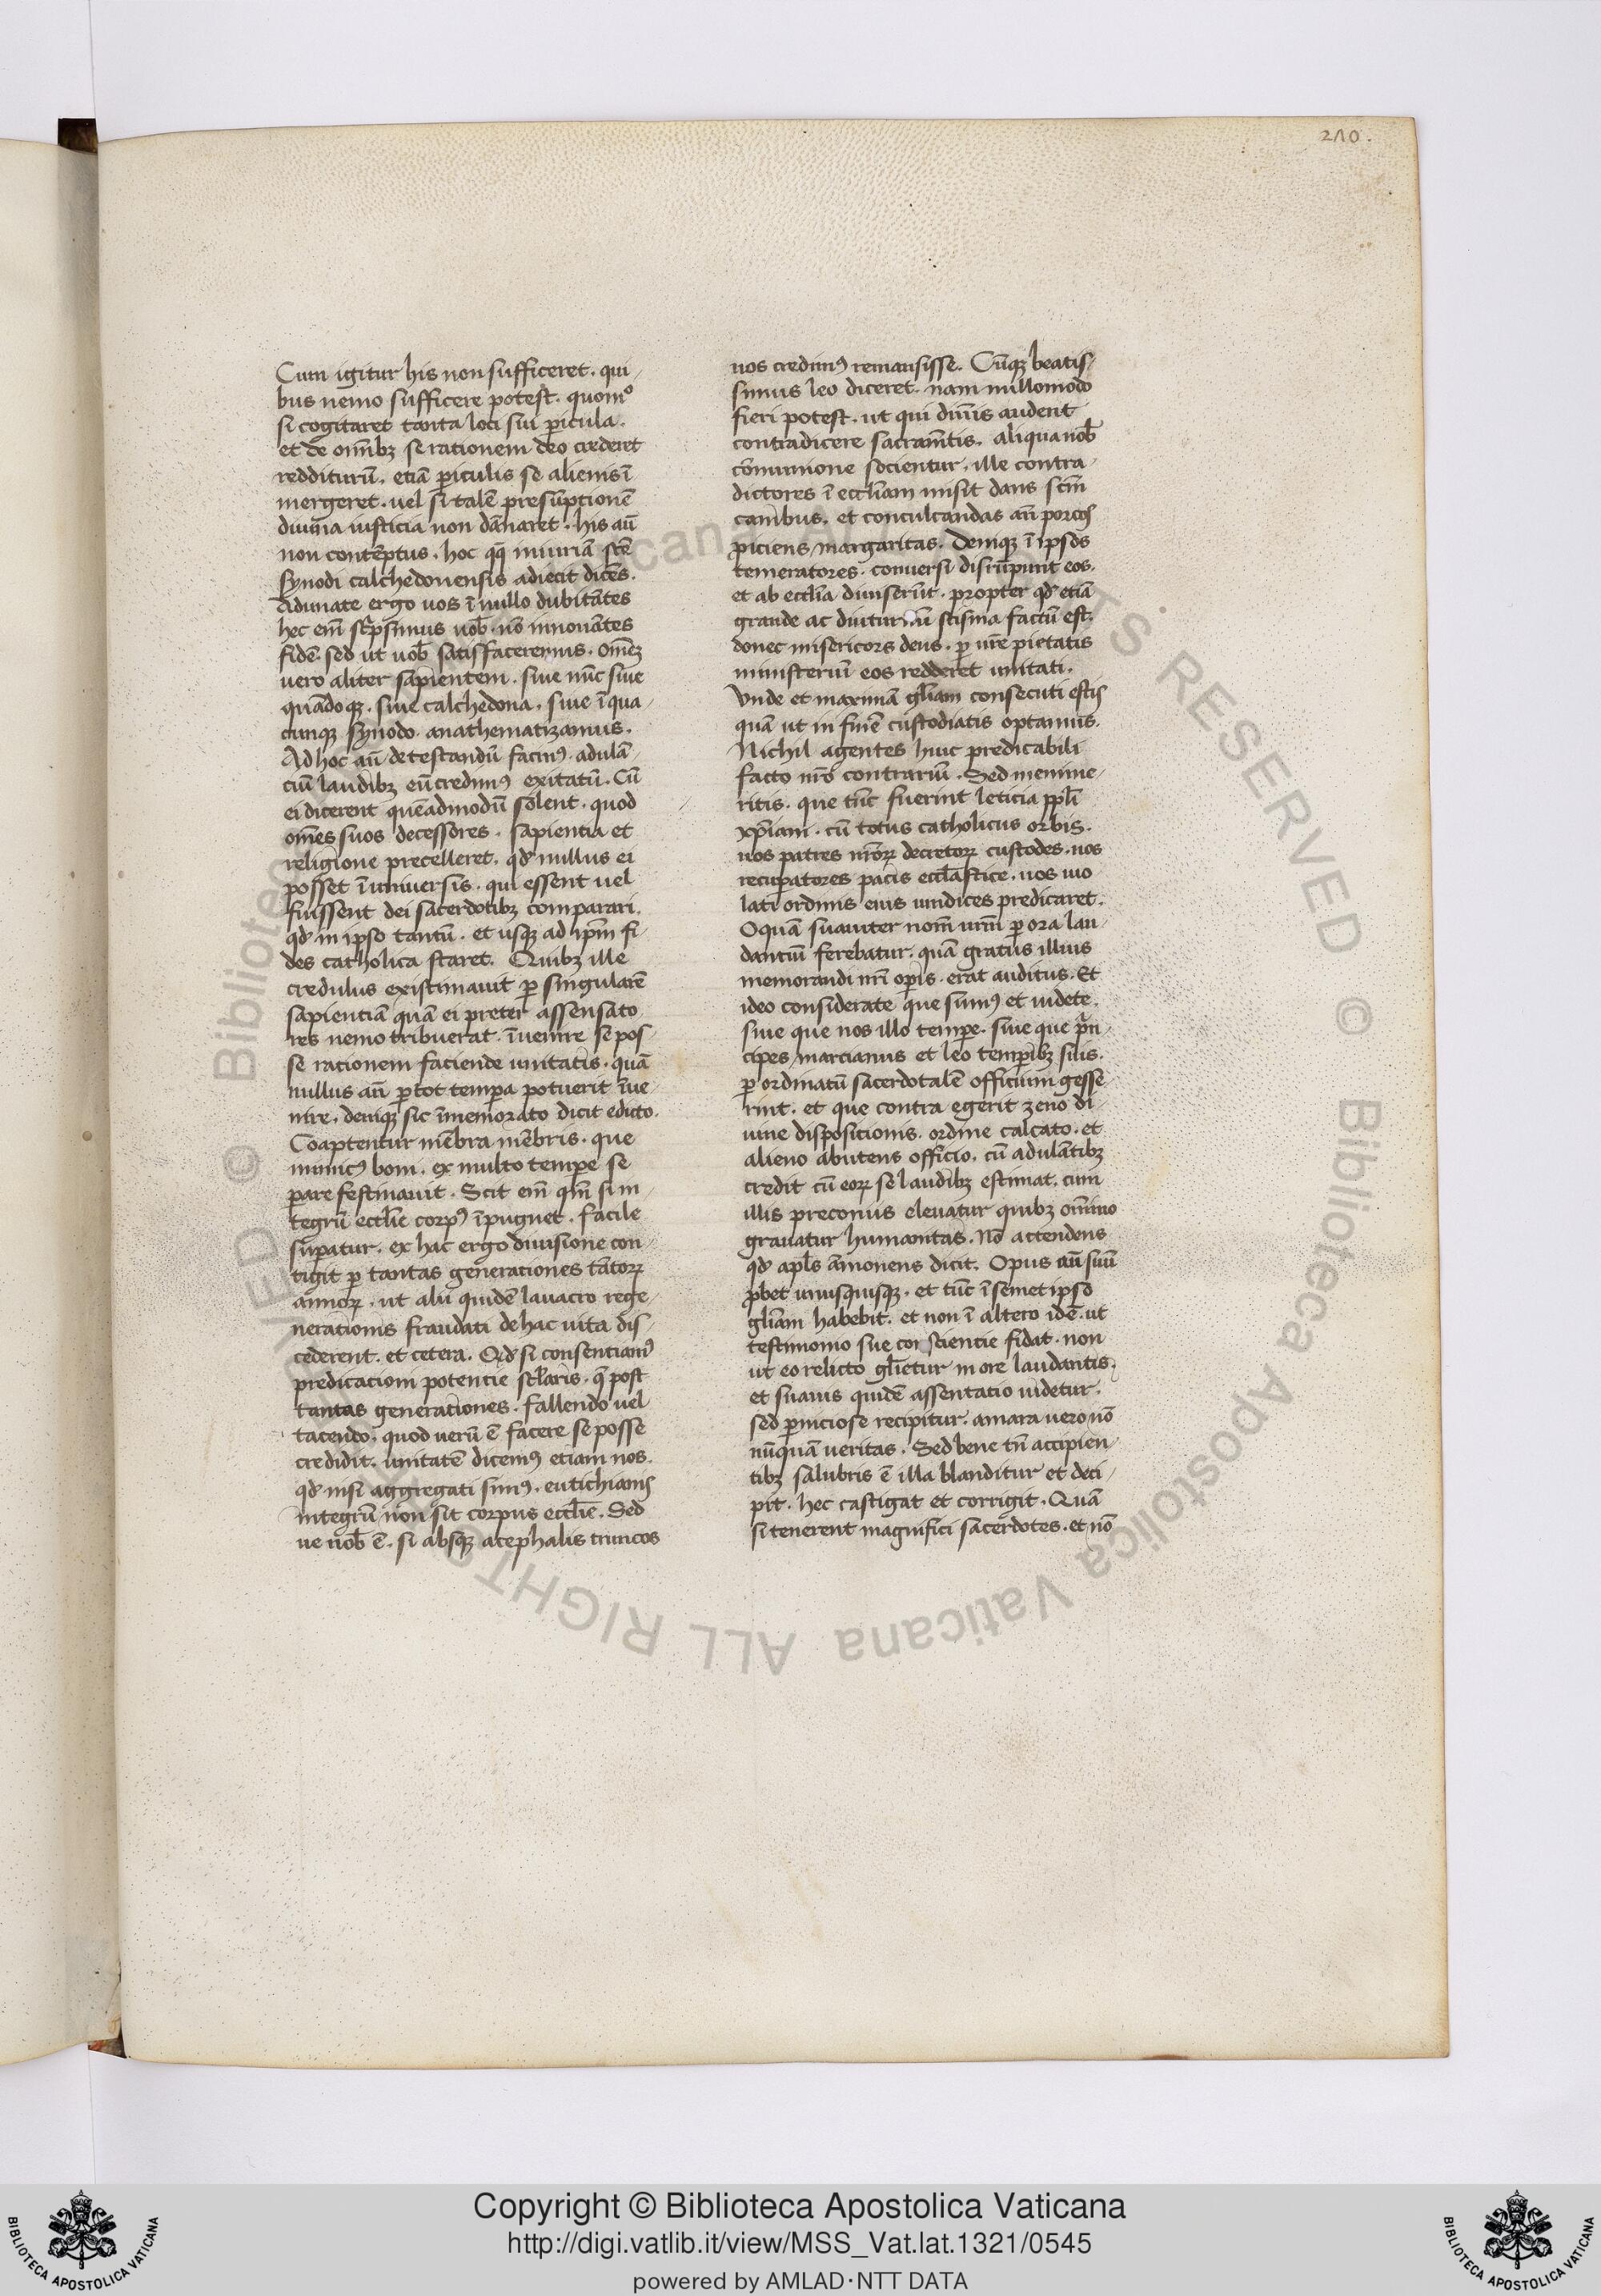 210.
Cum igitur his non sufficeret. qui-
bus nemo sufficere potest. quomo
si cogitaret tanta loci sui pericula.
et de om̄ibꝫ se rationem deo crederet
redditurū. etiā ꝑiculis se alienis ī
mergeret. uel si talē presūptionē
diuina iusticia non dānaret. his aū
non contēptus. hoc qꝫ iniuriā scē
synodi calchedonensis adiecit dicēs.
Adunate ergo uos ī nullo dubitātes
hec em̄ scͥpsimus uob̄. nō innouātes
fidē. sed ut uob̄ satisfaceremus. om̄eꝫ
uero aliter sapientem. siue nūc siue
quādoqꝫ. siue calchedona. siue ī qua-
cunqꝫ synodo anathematizamus.
Ad hoc aū detestandū facinꝰ. adulā-
ciū laudibꝫ eū credimꝰ exitatū. Cū
ei dicerent quēadmodū solent. quod
om̄es suos decessores. sapientia et
religione precelleret. qd̓ nullus ei
posset ī uniuersis. qui essent uel
fuissent dei sacerdotibꝫ comparari.
qd̓ in ipso tantū. et usqꝫ ad ip̄m fi-
des catholica staret. Quibꝫ ille
credulus existimauit ꝑ singularē
sapientiā quā ei preter assensato-
res nemo tribuerat. īuenire se pos-
se rationem faciende unitatis. quā
nullus an̄ ꝑ tot tempora potuerit īue-
nire. deniqꝫ sic īmemorato dicit edicto.
Coaptentur mēbra mēbris. que
inimicꝰ boni. ex multo tempore se
parare festinauit. Scit em̄ qm̄ si in-
tegrū eccl̄ie corpꝰ īpugnet. facile
suꝑatur. ex hac ergo diuisione con-
tigit ꝑ tantas generationes tātoꝝ
annoꝝ. ut alii quidē lauacro rege-
nerationis fraudati de hac uita dis-
cederent. et cetera. Qd̓ si consentiamꝰ
predicationi potencie sc̄laris. qꝫ post
tantas generationes. fallendo uel
tacendo. quod uerū ē facere se posse
credidit. unitatē dicemꝰ etiam nos.
qd̓ nisi aggregati simꝰ. eutichianis
integrū non sit corpus eccl̄ie. Sed
ue nob̄ ē. si absqꝫ acephalis truncos
nos credimꝰ remansisse. Cūqꝫ beatis-
simus leo diceret. nam nullomodo
fieri potest. ut qui diuinis audent
contradicere sacram̄tis. aliqua nob̄
cōmunione socientur. ille contra-
dictores ī eccl̄iam misit dans sc̄m
canibus. et conculcandas an̄ porcos
ꝓiciens margaritas. Deniqꝫ ī ipsos
temeratores. conuersi disrūpunt eos.
et ab eccl̄ia diuiserūt. propter qd̓ etiā
grande ac diuturnū scisma factū est.
donec misericors deus. ꝑ ur̄e pietatis
ministeriū eos redderet unitati.
Vnde et maximā gl̄iam consecuti estis
quā ut in finē custodiatis optamus.
Nichil agentes huic predicabili
facto ur̄o contrariū. Sed memine-
ritis. que tūc fuerint leticia ppl̄i
xp̄iani. cū totus catholicus orbis.
uos patres ur̄oꝝ decretoꝝ custodes. uos
recuꝑatores pacis eccl̄astice. uos uio
lati ordinis eius uindices predicaret.
O quā suauiter nom̄ ur̄m ꝑ ora lau-
dantiū ferebatur. quā gratus illius
memorandi ur̄i operis. erat auditus. Et
ideo considerate que sumꝰ et uidete.
siue que nos illo tempore. siue que pͥn-
cipes marcianus et leo temporibꝫ suis.
ꝑ ordinatū sacerdotalē officium gesse-
rint. et que contra egerit zeno di-
uine dispositionis. ordine calcato. et
alieno abutens officio. cū adulātibꝫ
credit cū eoꝝ se laudibꝫ estimat. cum
illis preconiis eleuatur quibꝫ om̄ino
grauatur humanitas. Nō attendens
qd̓ apl̄s āmonens dicit. Opus aū suū
ꝓbet unusquisqꝫ. et tūc ī semetipso
gl̄iam habebit. et non ī altero idē. ut
testimonio sue conscientie fidat. non
ut eo relicto gl̄ietur in ore laudantis.
et suauis quidē assentatio uidetur.
sed ꝑniciose recipitur. amara uero nō
nūquā ueritas. Sed bene tn̄ accipien-
tibꝫ salubris ē illa blanditur et deci-
pit. hec castigat et corrigit. Quā
si tenerent magnifici sacerdotes. et nō
© Biblioteca Apostolica Vaticana ALL RIGHTS RESERVED
Copyright © Biblioteca Apostolica Vaticana
http://digi.vatlib.it/view/MSS_Vat.lat.1321/0545
powered by AMLAD·NTT DATA
BIBLIOTECA APOSTOLICA VATICANA
BIBLIOTECA APOSTOLICA VATICANA